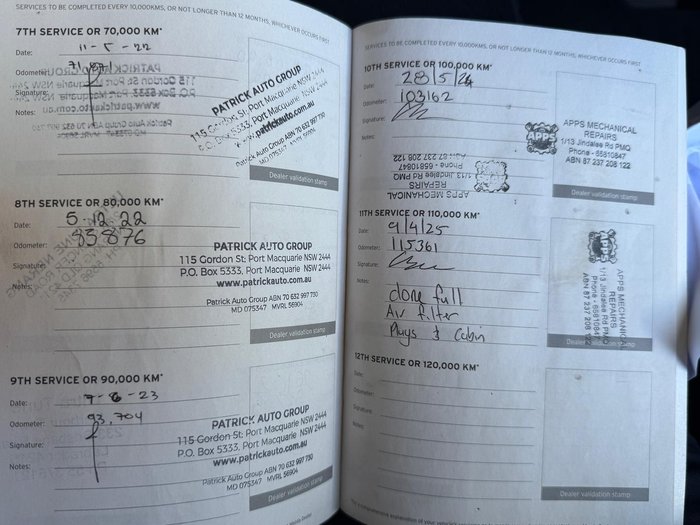 SERVICES TO BE COMPLETED EVERY 10,000KMS, OR NOT LONGER THAN 12 MONTHS, WHICHEVER OCCURS FIRST
7TH SERVICE OR 70,000 KM*
Date: 11-5-22
Odometer: 71,871
Signature:
Notes:
PATRICK AUTO GROUP
115 Gordon St; Port Macquarie NSW 2444
P.O. Box 5333, Port Macquarie NSW 2444
www.patrickauto.com.au
Patrick Auto Group ABN 70 632 997 730
MD 075347 MVRL 56904
Dealer validation stamp
8TH SERVICE OR 80,000 KM*
Date: 5.12.22
Odometer: 85876
Signature:
Notes:
PATRICK AUTO GROUP
115 Gordon St; Port Macquarie NSW 2444
P.O. Box 5333, Port Macquarie NSW 2444
www.patrickauto.com.au
Patrick Auto Group ABN 70 632 997 730
MD 075347 MVRL 56904
Dealer validation stamp
9TH SERVICE OR 90,000 KM*
Date: 7-6-23
Odometer: 93,704
Signature:
Notes:
PATRICK AUTO GROUP
115 Gordon St; Port Macquarie NSW 2444
P.O. Box 5333, Port Macquarie NSW 2444
www.patrickauto.com.au
Patrick Auto Group ABN 70 632 997 730
MD 075347 MVRL 56904
Dealer validation stamp
SERVICES TO BE COMPLETED EVERY 10,000KMS, OR NOT LONGER THAN 12 MONTHS, WHICHEVER OCCURS FIRST
10TH SERVICE OR 100,000 KM*
Date: 28/5/24
Odometer: 103162
Signature:
Notes:
APPS
APPS MECHANICAL
REPAIRS
1/13 Jindalee Rd PMQ
Phone - 65810847
ABN 87 237 208 122
APPS MECHANICAL
REPAIRS
1/13 Jindalee Rd PMQ
Phone - 65810847
ABN 87 237 208 122
Dealer validation stamp
11TH SERVICE OR 110,000 KM*
Date: 9/4/25
Odometer: 115361
Signature:
Notes: done full
Air filter
Plugs & Cabin
APPS
APPS MECHANIC
REPAIRS
1/13 Jindalee Rd PM
Phone - 6581084
ABN 87 237 208
Dealer validation stamp
12TH SERVICE OR 120,000 KM*
Date:
Odometer:
Signature:
Notes:
Dealer validation stamp